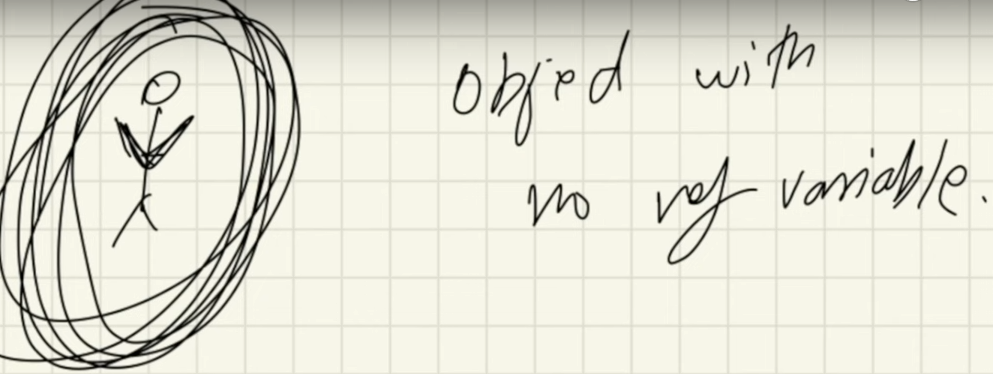 object with
no ref variable.